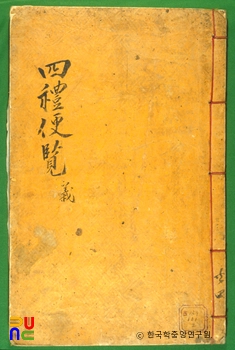 四禮便覽
義
共四
ⓒ 한국학중앙연구원